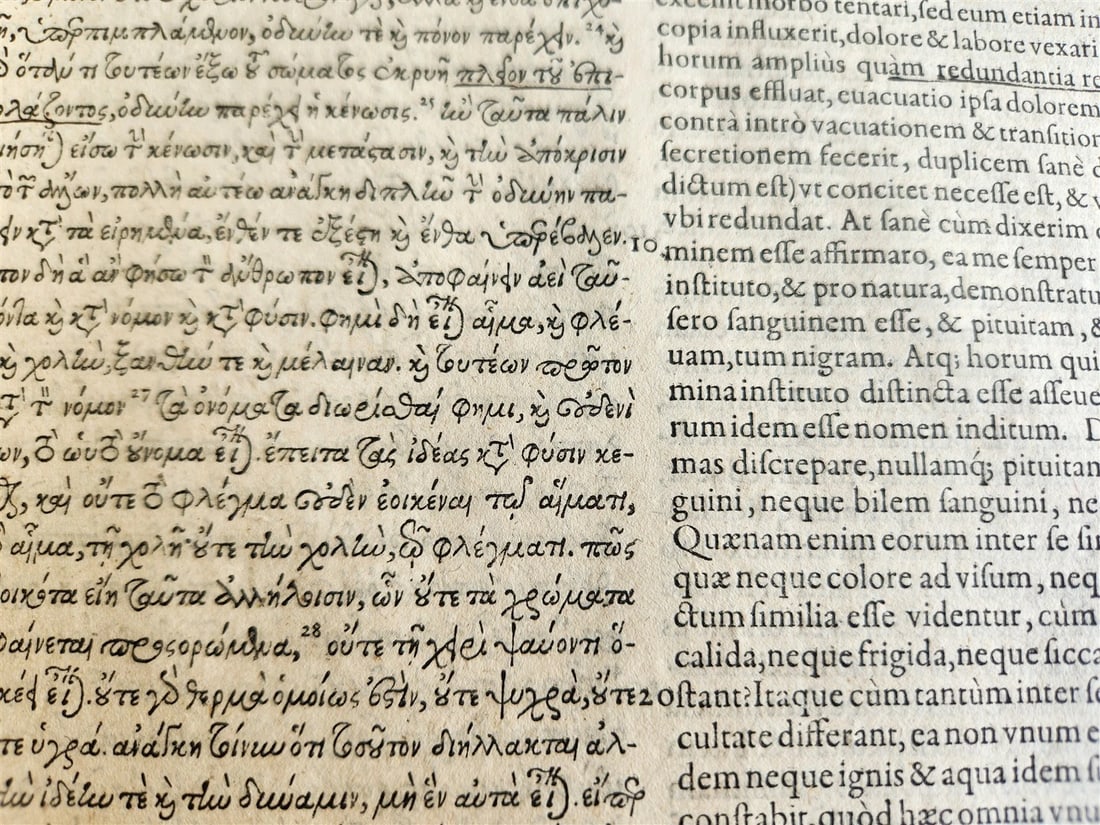 ὑπερπιμπλάμενον, ὀδύνην τὲ καὶ πόνον παρέχειν. 24 καὶ
ὁτόταν τι τουτέων ἔξω τοῦ σώματος ἐκρυῇ πλεῖον τοῦ ἐπι-
πολάζοντος, ὀδύνην παρέχει ἡ κένωσις. 25 ἢν ταῦτα πάλιν
εἴσω τὴν κένωσιν, καὶ τὴν μετάστασιν, καὶ τὴν ἀπόκρισιν
ἄλλων, πολλὴ αὐτέω ἀνάγκη διπλὴν τὴν ὀδύνην πα-
κατὰ τὰ εἰρημένα, ἔνθέν τε ἐξέστη καὶ ἔνθα ὑπερέβαλεν.
δὴ ἃ ἂν φήσω τὸν ἄνθρωπον εἶναι, ἀποφαίνειν ἀεὶ ταὐ-
καὶ κατὰ νόμον καὶ κατὰ φύσιν. φημὶ δὴ εἶναι αἷμα, καὶ φλέ-
καὶ χολὴν, ξανθήν τε καὶ μέλαιναν. καὶ τουτέων πρῶτον
κατὰ τὸν νόμον 27 τὰ ὀνόματα διωρίσθαι φημι, καὶ οὐδενὶ
τὸ ωὐτὸ οὔνομα εἶναι. ἔπειτα τὰς ἰδέας κατὰ φύσιν κε-
καὶ οὔτε τὸ φλέγμα οὐδὲν ἐοικέναι τῷ αἵματι,
αἷμα, τῇ χολῇ οὔτε τὴν χολὴν, τῷ φλέγματι. πῶς
ἐοικότα εἴη ταῦτα ἀλλήλοισιν, ὧν οὔτε τὰ χρώματα
φαίνεται προσορώμενα, 28 οὔτε τῇ χειρὶ ψαύοντι ὅ-
εἶναι. οὔτε γὰρ θερμὰ ὁμοίως ἐστὶν, οὔτε ψυχρὰ, οὔτε
ὑγρά. ἀνάγκη τοίνυν ὅτι τοσοῦτον διήλλακται ἀλ-
τὴν ἰδέην τὲ καὶ τὴν δύναμιν, μὴ ἓν αὐτὰ εἶναι. εἴπερ
10
20
morbo tentari, sed eum etiam in
copia influxerit, dolore & labore vexari
horum ampliùs quàm redundantia
corpus effluat, euacuatio ipsa dolorem
contrà intrò vacuationem & transition
secretionem fecerit, duplicem sanè
dictum est) vt concitet necesse est, &
vbi redundat. At sanè cùm dixerim
minem esse affirmaro, ea me semper
instituto, & pro natura, demonstratu
sero sanguinem esse, & pituitam, &
uam, tum nigram. Atq; horum qui
mina instituto distincta esse asseue
rum idem esse nomen inditum. D
mas discrepare, nullamq́; pituitam
guini, neque bilem sanguini, ne
Quænam enim eorum inter se sim
quæ neque colore ad visum, neq
ctum similia esse videntur, cùm
calida, neque frigida, neque sicca
stant? Itaque cùm tantùm inter se
cultate differant, ea non vnum e
dem neque ignis & aqua idem
constabit, quòd hæc omnia vnu